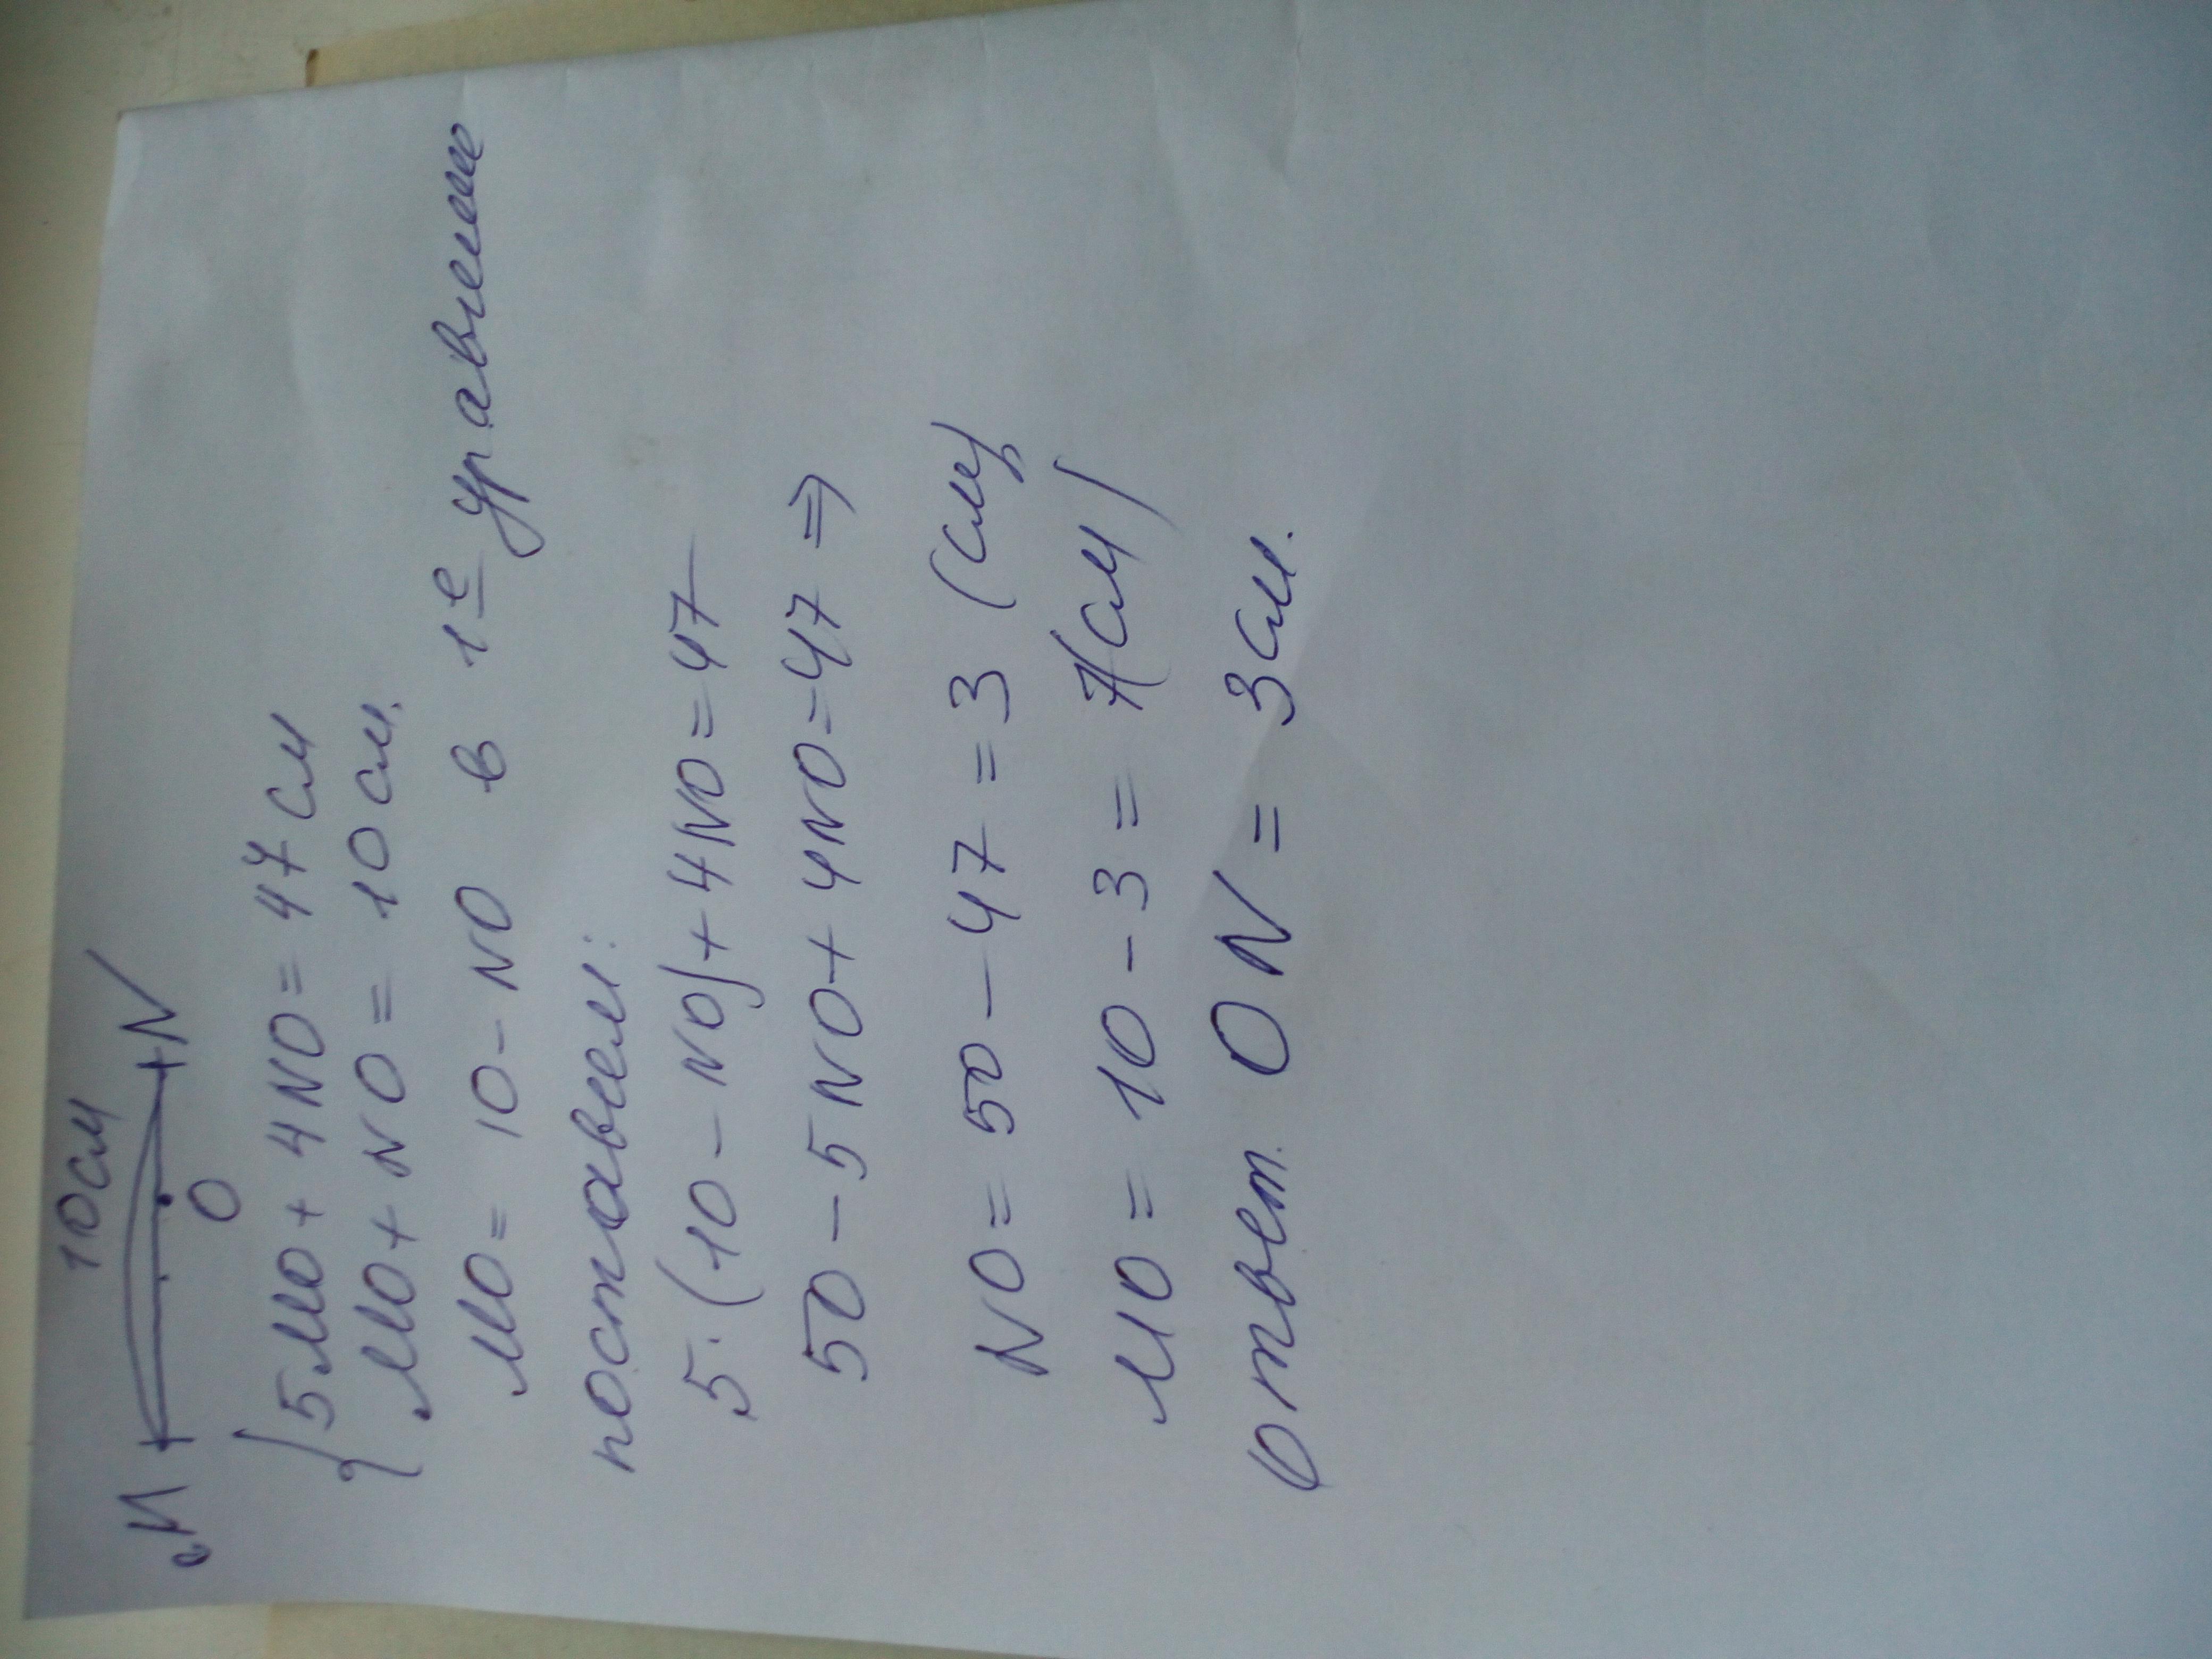 10 см
M N
O
{ 5MO + 4NO = 47 см
MO + NO = 10 см.
MO = 10 - NO в 1е уравнение
поставлем:
5·(10 - NO) + 4NO = 47
50 - 5NO + 4NO = 47 ⇒
NO = 50 - 47 = 3 (см)
MO = 10 - 3 = 7(см)
Ответ. ON = 3 см.